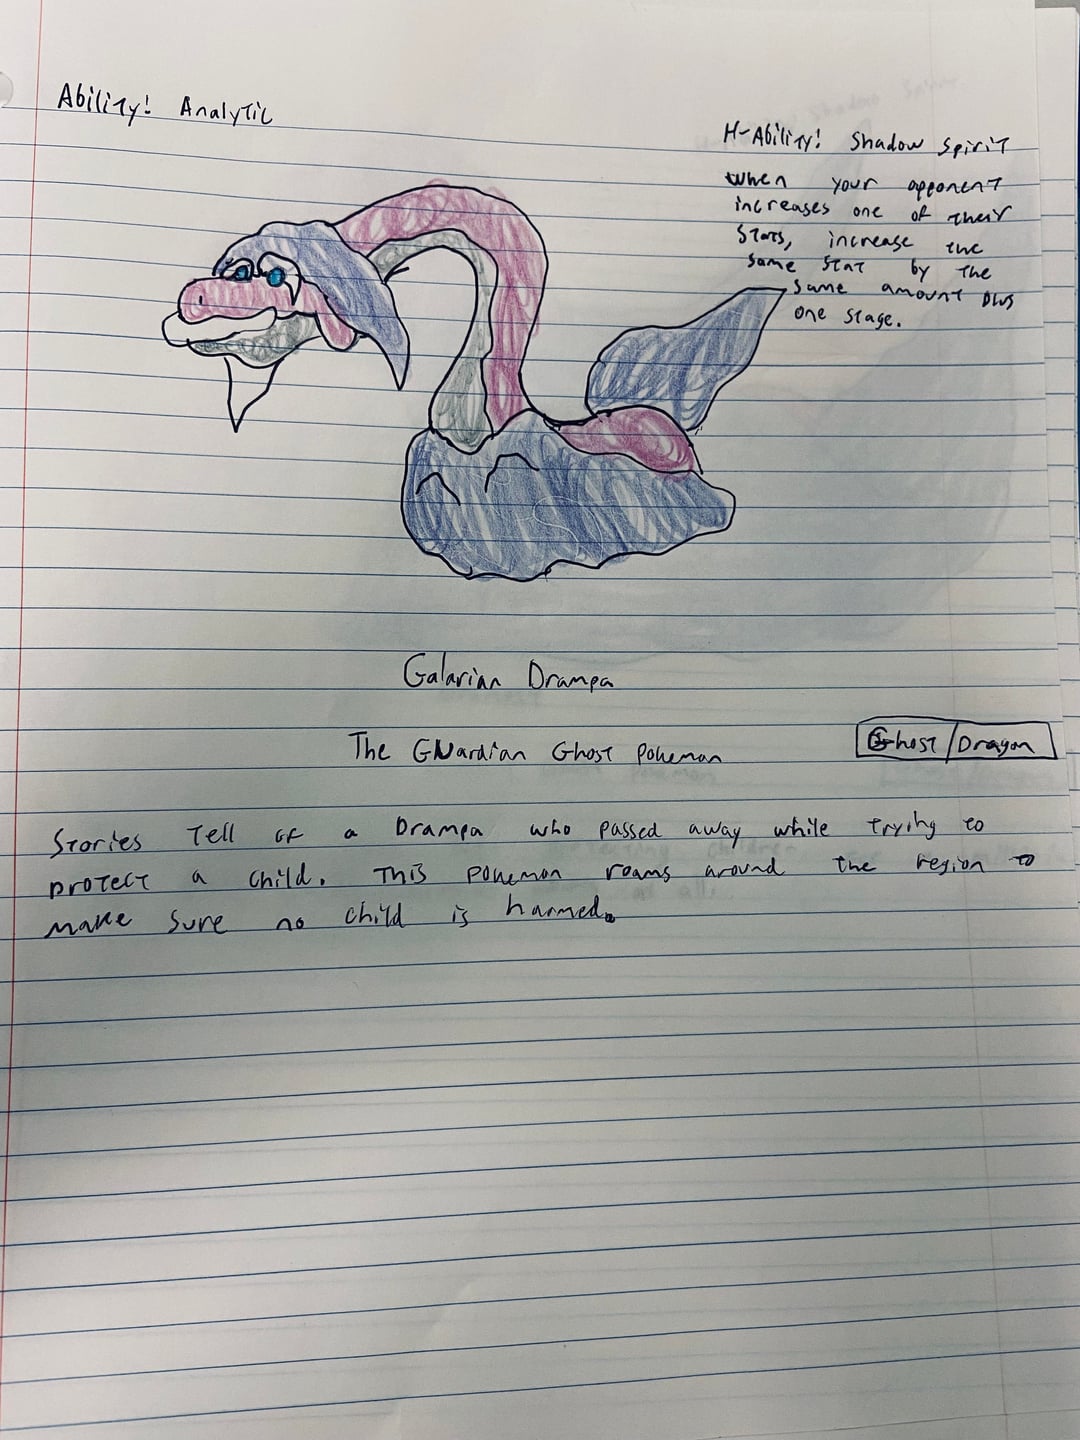 Ability! Analytic
H-Ability! Shadow Spirit
When your opponent
increases one of their
Stats, increase the
same stat by the
same amount plus
one stage.
Galarian Drampa
The Guardian Ghost Pokemon
Ghost/Dragon
Stories Tell of a Drampa who passed away while trying to
protect a child. This pokemon roams around the region to
make sure no child is harmed.